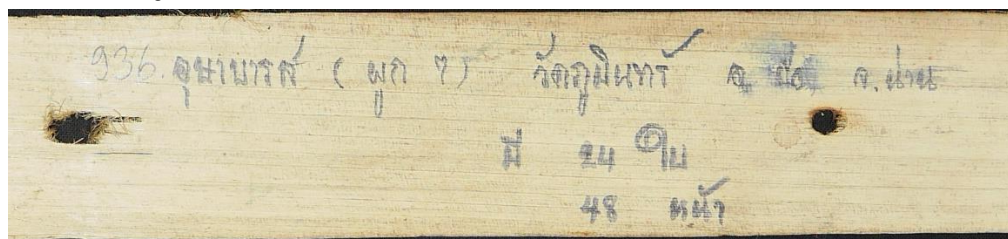 936. อุษาบารส (ผูก 7) วัดภูมินทร์ อ. เมือง จ.น่าน
มี 24 ใบ
48 หน้า